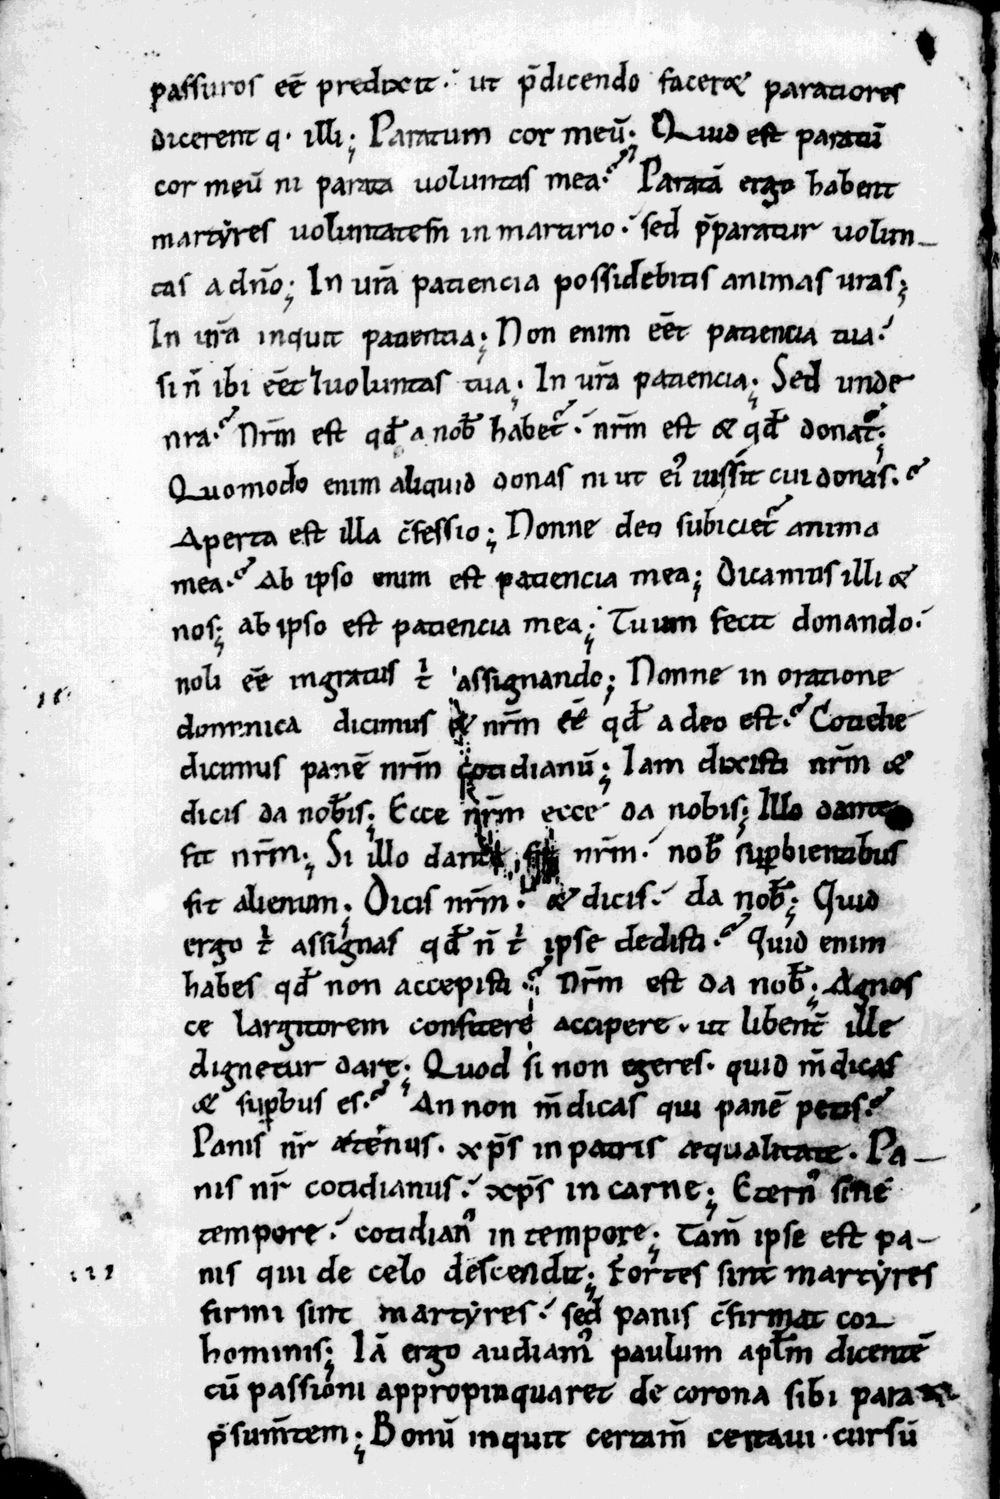 passuros eē predixit· ut p̄dicendo faceret paratiores
dicerent q· illi; Paratum cor meū; Quid est paratū
cor meū ni parata uoluntas mea·? Paratā ergo habent
martẏres uoluntatem̄ in martirio· sed p̄paratur uolun-
tas a dn̄o; In ur̄a patiencia possidebitis animas uras;
In ur̄a inquit patientia; Non enim eēt patiencia tua·
si n̄ ibi eēt uoluntas tua; In ur̄a patiencia; Sed unde
nra·? Nr̄m est qđ a nob̄ habet̄· nr̄m est & qđ donat̄;
Quomodo enim aliquid donas ni ut ei᾽ iussit cui donas·?
Aperta est illa c̄fessio; Nonne deo subiciet̄ anima
mea·? Ab ipso enim est patiencia mea; Dicamus illi &
nos; ab ipso est patiencia mea; Tuum fecit donando·
noli eē ingratus t̄ assignando; Nonne in oratione
dominica dicimus & nr̄m eē qđ a deo est·? Cotidie
dicimus panē nr̄m cotidianū; Iam dixisti nr̄m &
dicis da nob̄is; Ecce nr̄m ecce da nobis; Illo dante
fit nr̄m; Si illo dante fit nr̄m· nob̄ sup̱bientibus
fit alienum; Dicis nr̄m· & dicis· da nob̄; Quid
ergo t̄ assignas qđ n̄ t̄ ipse dedisti·? Quid enim
habes qđ non accepisti·? Nr̄m est da nob̄; Agnos
ce largitorem confitere accipere· ut libent̄ ille
dignetur dare; Quod si non egeres· quid m̄dicas
& sup̱bus es·? An non m̄dicas qui panē petis·?
Panis nr̄ æternus· xp̄s in patris æqualitate· Pa-
nis nr̄ cotidianus· xp̄s in carne; Etern᾽ sine
tempore· cotidian᾽ in tempore; Tam̄ ipse est pa-
nis qui de celo descendit; Fortes sint martẏres
firmi sint martẏres· sed panis c̄firmat cor
hominis; Iā ergo audiam᾽ paulum apłm dicentē
cū passioni appropinquaret de corona sibi para
p̄sum̄tem; Bonū inquit certam̄ certaui· cursū